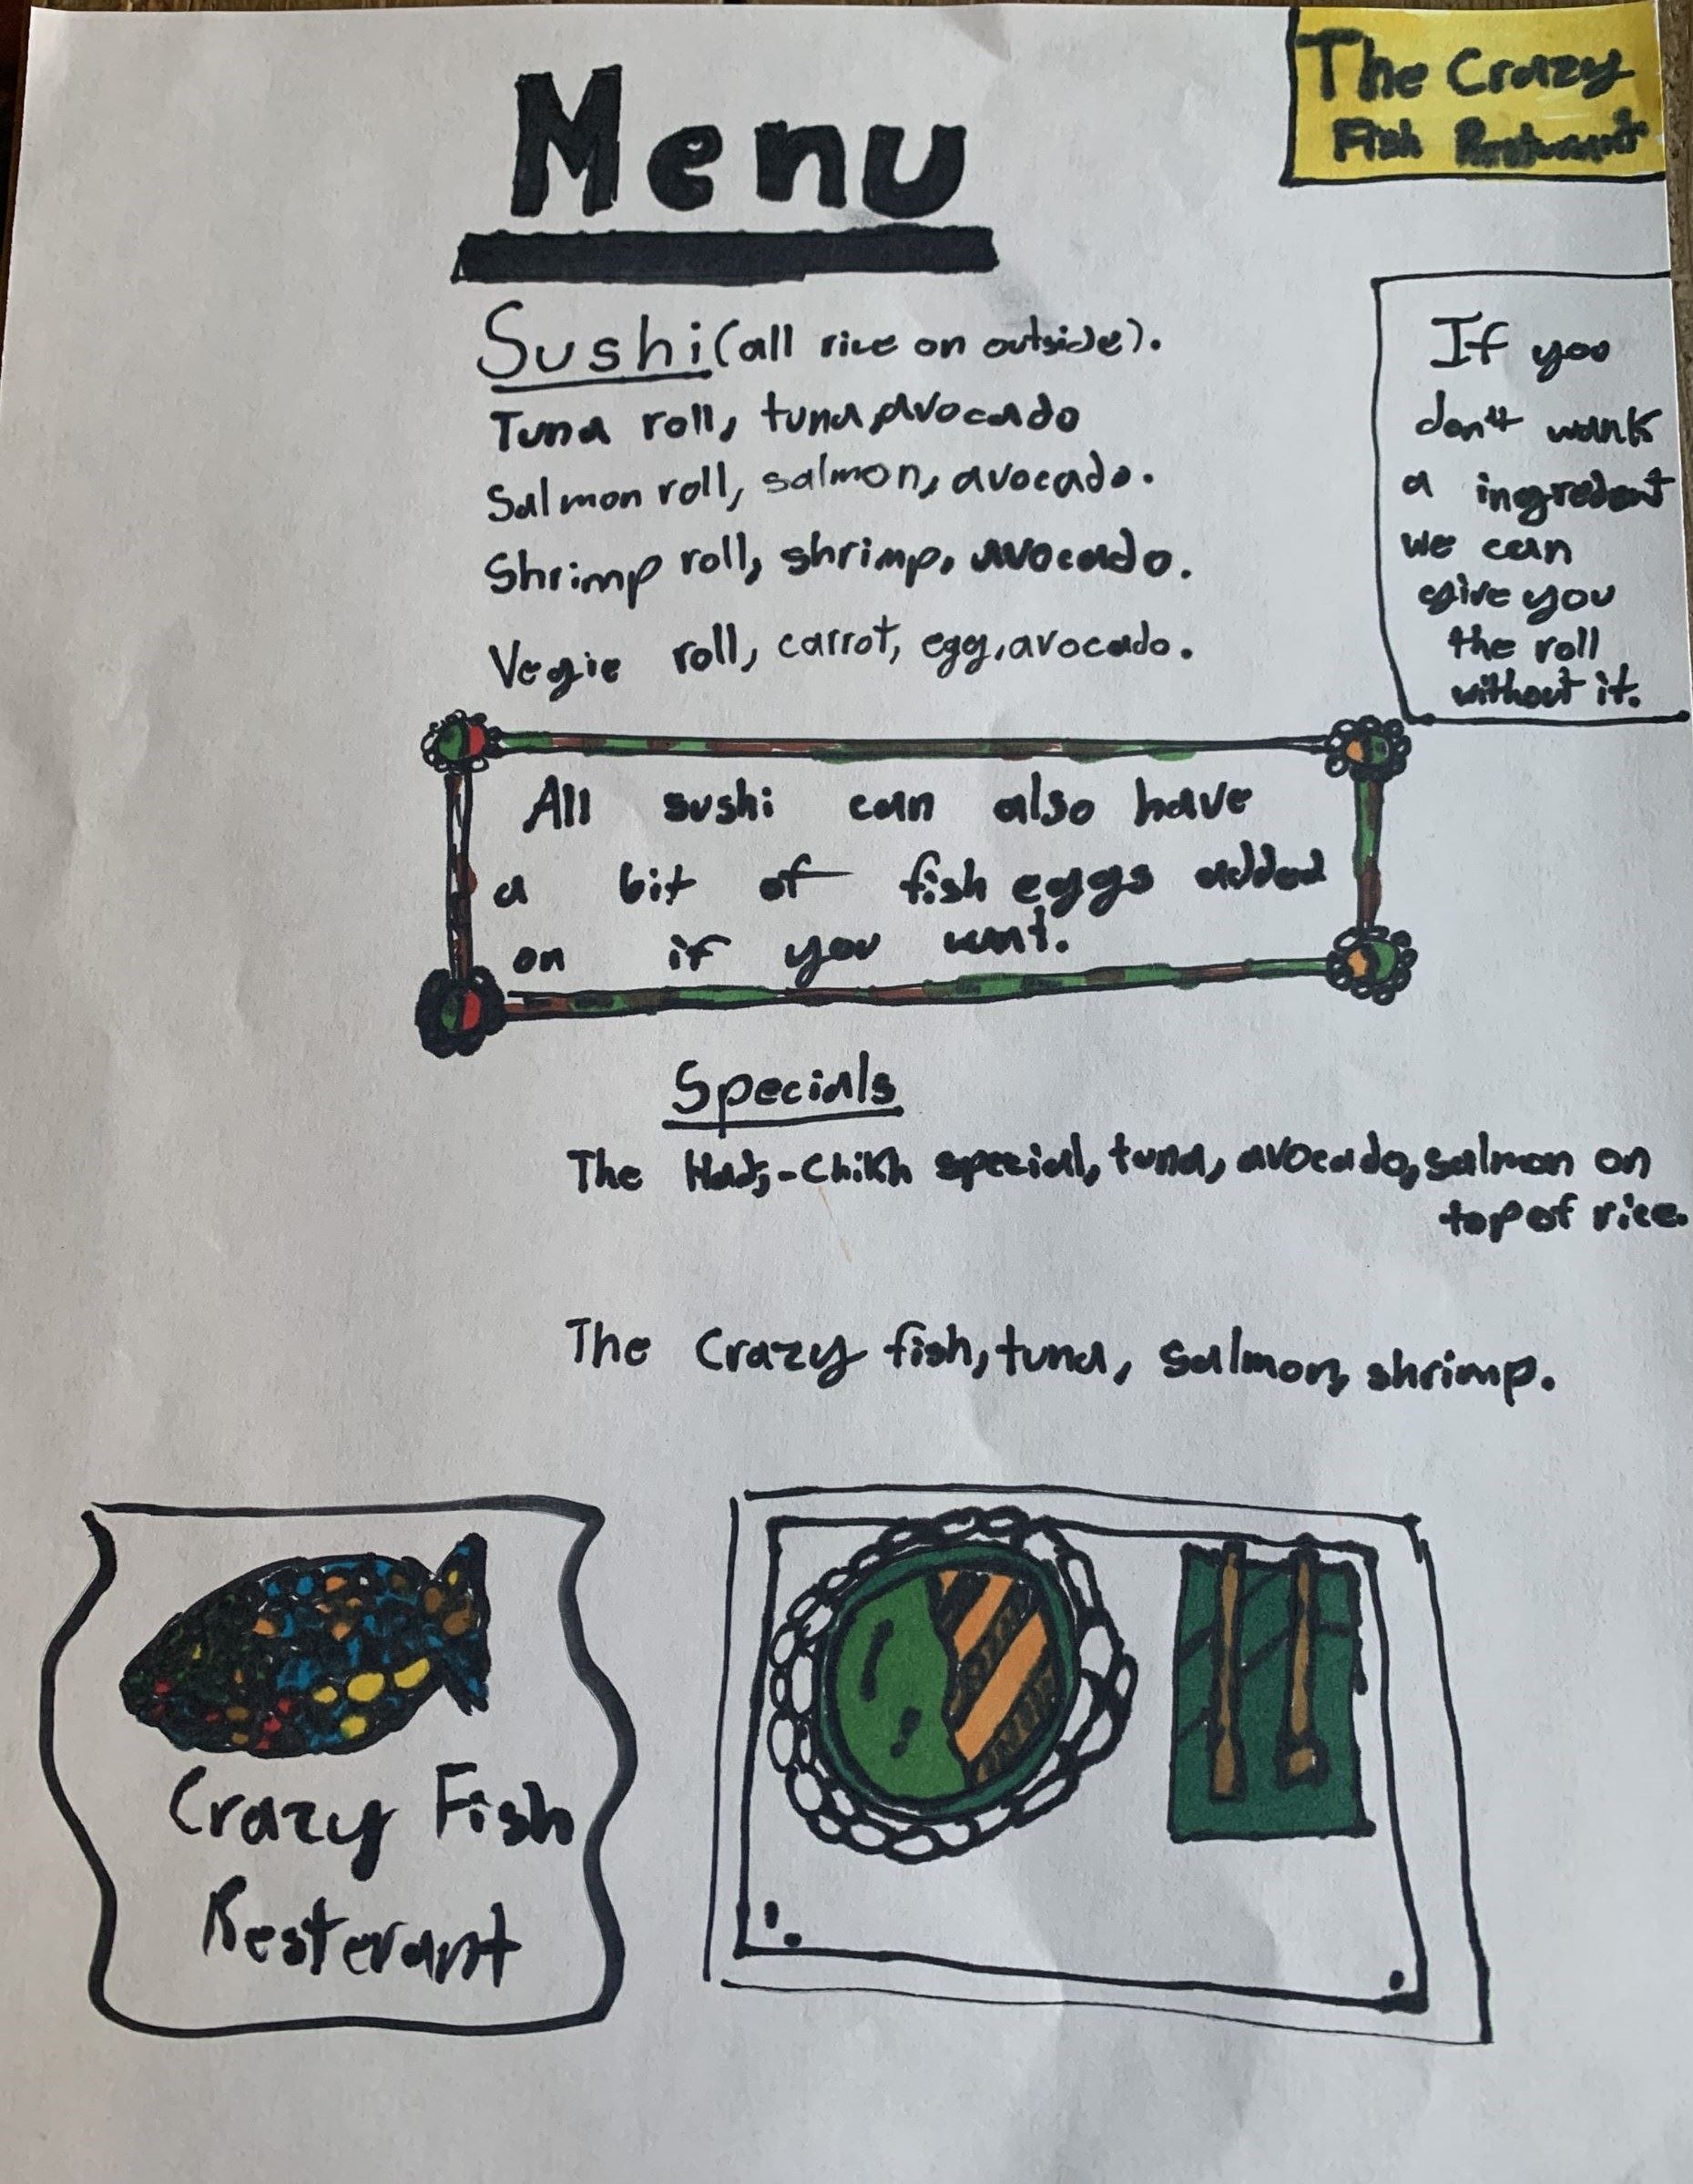 Menu
The Crazy
Fish Resturant
Sushi (all rice on outside).
Tuna roll, tuna, avocado
Salmon roll, salmon, avocado.
Shrimp roll, shrimp, avocado.
Vegie roll, carrot, egg, avocado.
If you
don't want
a ingredent
we can
give you
the roll
without it.
All sushi can also have
a bit of fish eggs added
on if you want.
Specials
The special, tuna, avocado, salmon on
top of rice.
The Crazy fish, tuna, salmon, shrimp.
Crazy Fish
Resterant